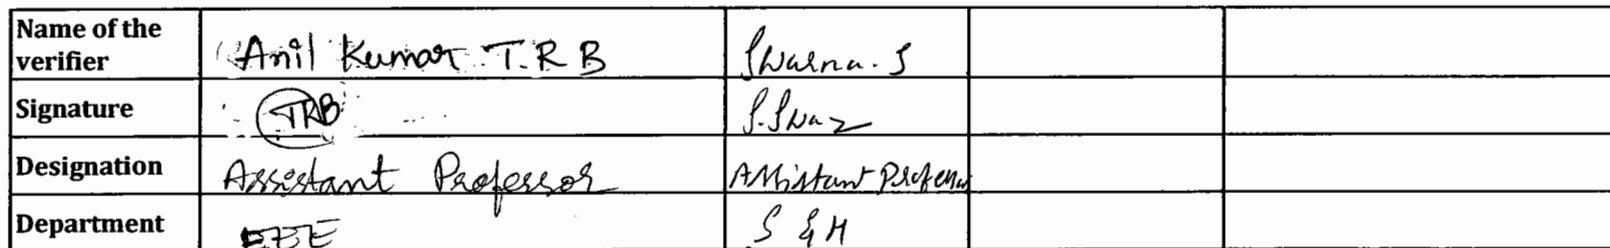 Name of the verifier Anil Kumar T.R B Swarna. S
Signature TRB S.Swa
Designation Assistant Professor Assistant Professor
Department EEE S & H